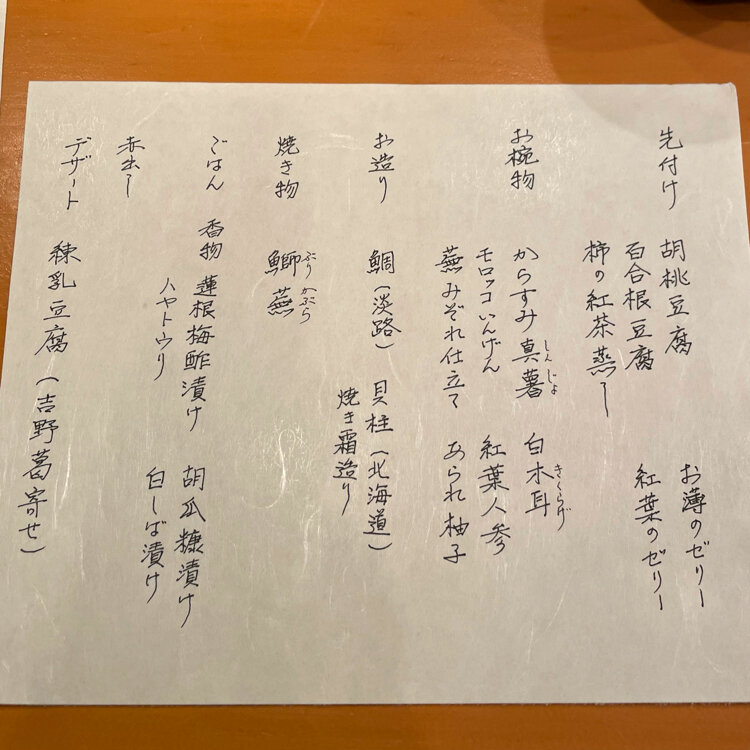 先付け
胡桃豆腐
お薄のゼリー
百合根豆腐
紅葉のゼリー
柿の紅茶蒸し
お椀物
からすみ真薯 白木耳
しんじょ
きくらげ
モロッコいんげん 紅葉人参
蕪みぞれ仕立て あられ柚子
お造り
鯛(淡路) 貝柱(北海道)
焼き霜造り
焼き物
鰤 蕪
ぶり かぶら
ごはん
香物 蓮根梅酢漬け 胡瓜糠漬け
ハヤトウリ 白しば漬け
赤出し
デザート
練乳豆腐(吉野葛寄せ)